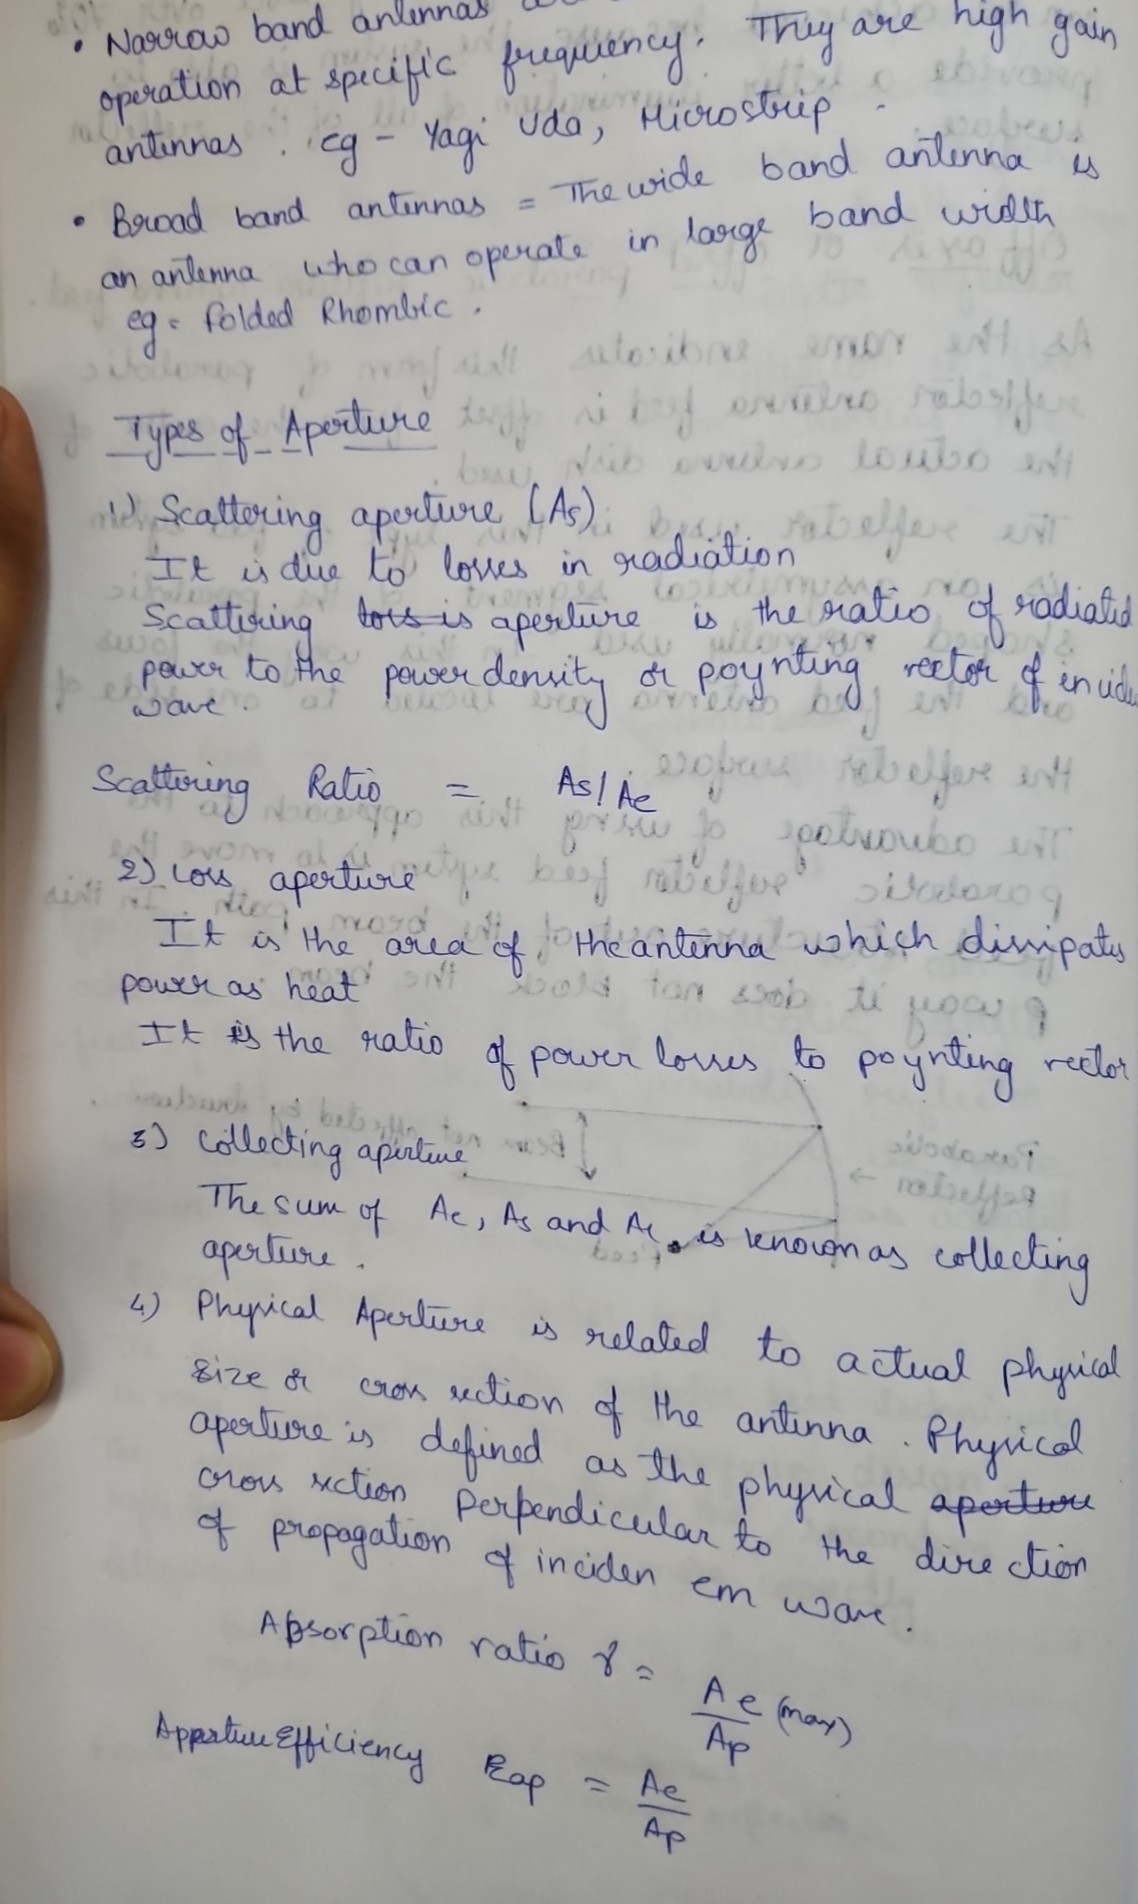 • Narrow band antennas
operation at specific frequency. They are high gain
antennas. eg - Yagi Uda, Microstrip.
• Broad band antennas = The wide band antenna is
an antenna who can operate in large band width
eg = folded Rhombic.
Types of Aperture
1) Scattering aperture (As)
It is due to losses in radiation
Scattering loss is aperture is the ratio of radiated
power to the power density or poynting vector of
wave.
Scattering Ratio = As/Ae
2) Loss aperture
It is the area of the antenna which dissipates
power as heat
It is the ratio of power losses to poynting vector
3) Collecting aperture
The sum of Ae, As and is known as collecting
aperture.
4) Physical Aperture is related to actual physical
size or cross section of the antenna. Physical
aperture is defined as the physical aperture
cross section perpendicular to the direction
of propagation of inciden em wave.
Absorption ratio γ = Ae (max) / Ap
Apperture Efficiency Eap = Ae / Ap